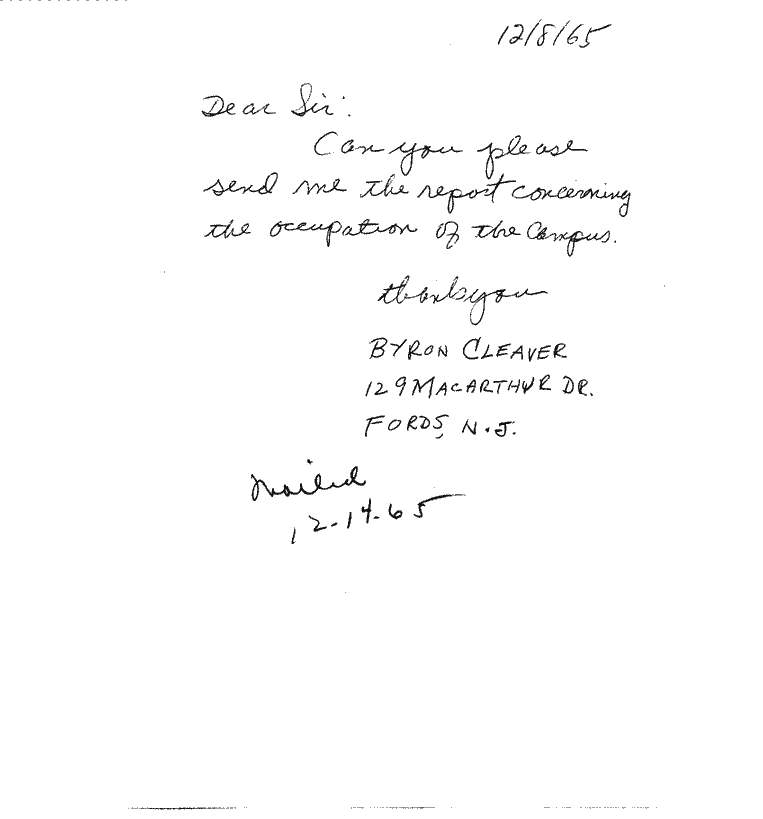 12/8/65
Dear Sir:
Can you please
send me the report concerning
the occupation of the Campus.
thank you
BYRON CLEAVER
129 MACARTHUR DR.
FORDS, N.J.
Mailed
12-14-65